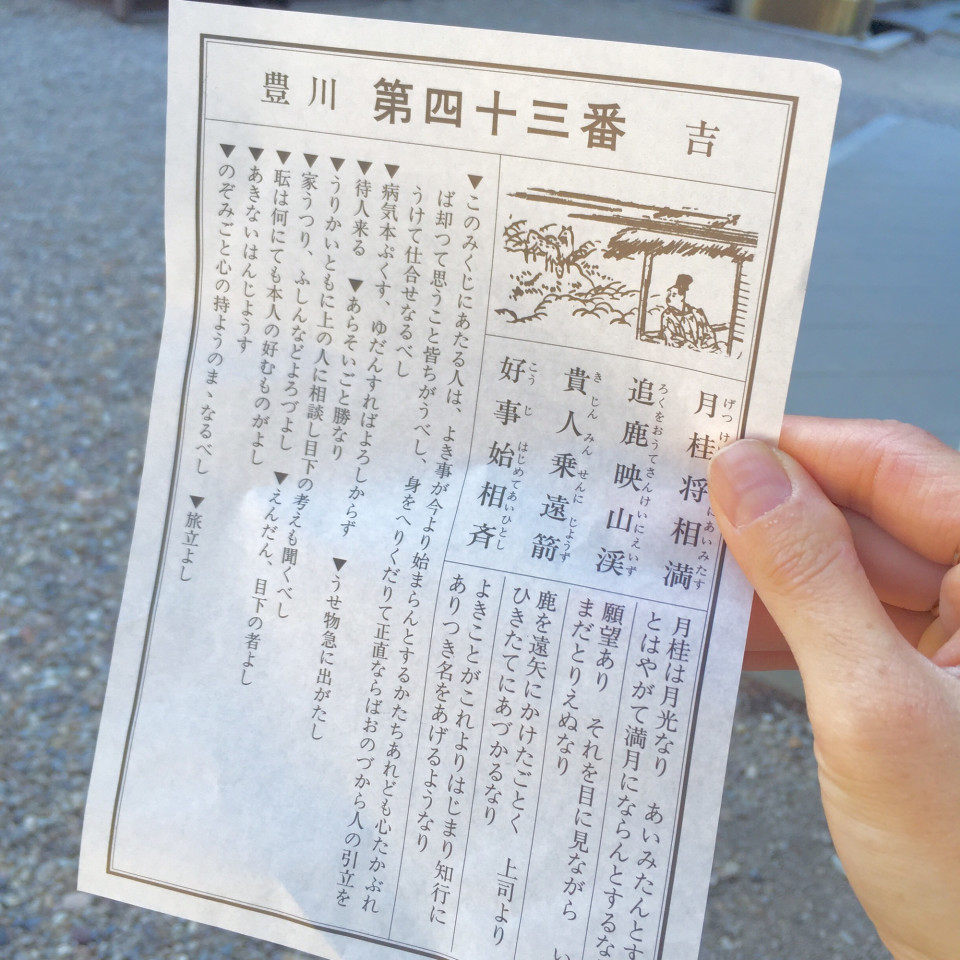 豊川 第四十三番 吉
げつけ にあいみたす
月桂将相満
ろくをおうてさんけいにえいず
追鹿映山渓
きじんみんせんに じょうず
貴人乗遠箭
こうじはじめてあいひとし
好事始相斉
月桂は月光なり　あいみたんとす
とはやがて満月にならんとするな
願望あり　それを目に見ながら　い
まだとりえぬなり
鹿を遠矢にかけたごとく　上司より
ひきたてにあづかるなり
よきことがこれよりはじまり知行に
ありつき名をあげるようなり
▼このみくじにあたる人は、よき事が今より始まらんとするかたちあれども心たかぶれ
ば却つて思うこと皆ちがうべし、身をへりくだりて正直ならばおのづから人の引立を
うけて仕合せなるべし
▼病気本ぷくす、ゆだんすればよろしからず　▼うせ物急に出がたし
▼待人来る　▼あらそいごと勝なり
▼うりかいともに上の人に相談し目下の考えも聞くべし
▼家うつり、ふしんなどよろづよし　▼えんだん、目下の者よし
▼耺は何にても本人の好むものがよし
▼あきないはんじようす
▼のぞみごと心の持ようのまゝなるべし　▼旅立よし